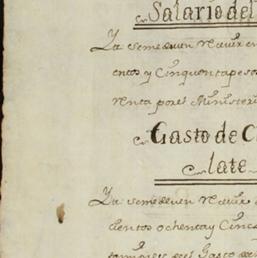 Salario del
Ya se me deven recivir en
entos y Cinquenta pesos
renta por el Ministeri
Gasto de C
late
Ya se me deven recivir
cientos ochenta y Cinc
el Gasto de